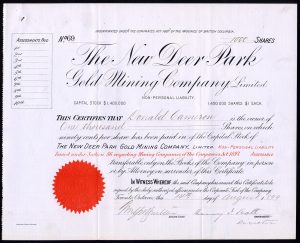 INCORPORATED UNDER THE COMPANIES ACT 1897 OF THE PROVINCE OF BRITISH COLUMBIA
ASSESSMENTS PAID
No 69
1000 SHARES
The New Deer Park
Gold Mining Company Limited
NON-PERSONAL LIABILITY
CAPITAL STOCK $1,400,000
1,400,000 SHARES $1 EACH
THIS CERTIFIES THAT Donald Cameron is the owner of
One thousand Shares, on which
ninety cents per share has been paid in of the Capital Stock of
THE NEW DEER PARK GOLD MINING COMPANY, LIMITED NON-PERSONAL LIABILITY
Issued under Section 56 regarding Mining Companies of the Companies Act 1897. Assessable
Transferable only on the Books of the Company in person
or by Attorney on surrender of this Certificate
IN WITNESS WHEREOF the said Company has caused this Certificate to be
signed by the duly authorized officers and the Seal of the Company
Toronto Ontario this day of August 1899